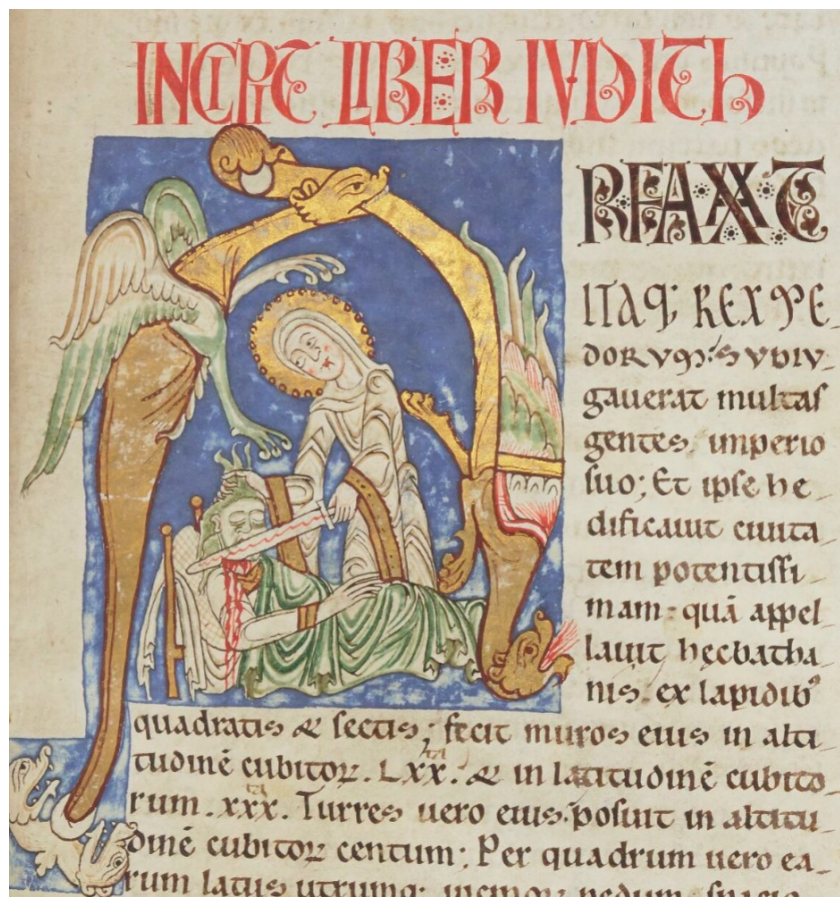 INCIPIT LIBER IVDITh
RFAXAT
ITAQ; REX ME
DORVM: SVBIV-
gauerat multas
gentes. imperio
suo; Et ipse he
dificauit ciuita
tem potentissi
mam: quā appel
lauit hecbatha
nis. ex lapidib'
quadratis & sectis; fecit muros eius in alti
tudinē cubitoꝝ. Lxx.ta & in latitudinē cubito
rum. xxx.ta Turres uero eius posuit in altitu
dinē cubitoꝝ centum; Per quadrum uero ea-
rum latus utrumq; uicinoꝝ pedum spacio